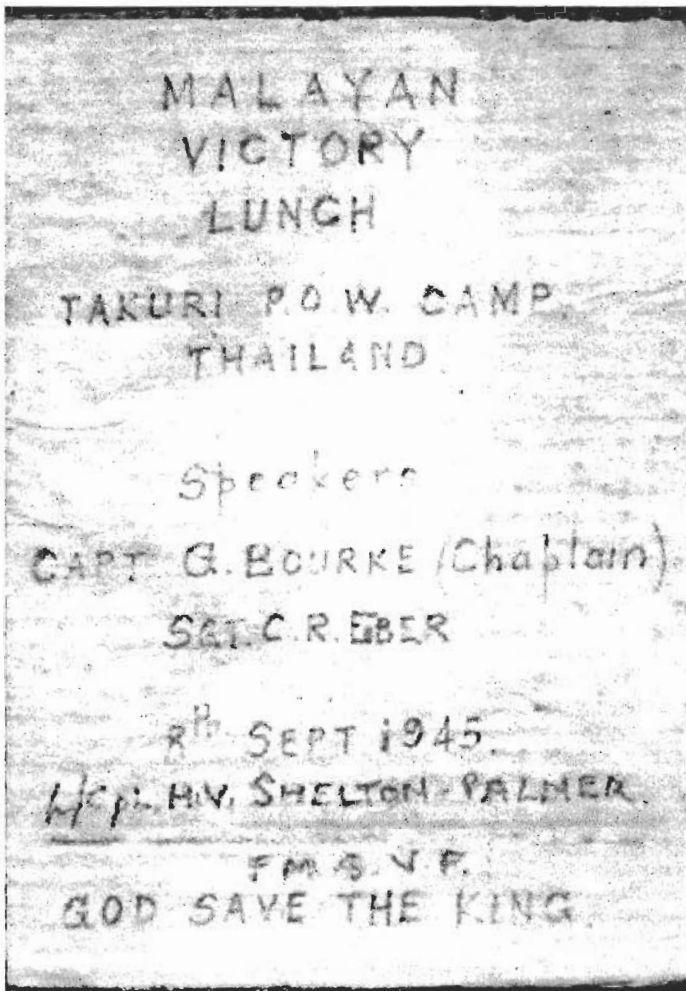 MALAYAN
VICTORY
LUNCH
TAKURI P.O.W. CAMP.
THAILAND
Speakers
CAPT G. BOURKE (Chaplain)
SGT. C.R. EBER
8th SEPT 1945.
L/Cpl. H.V. SHELTON-PALMER.
F M S V F.
GOD SAVE THE KING